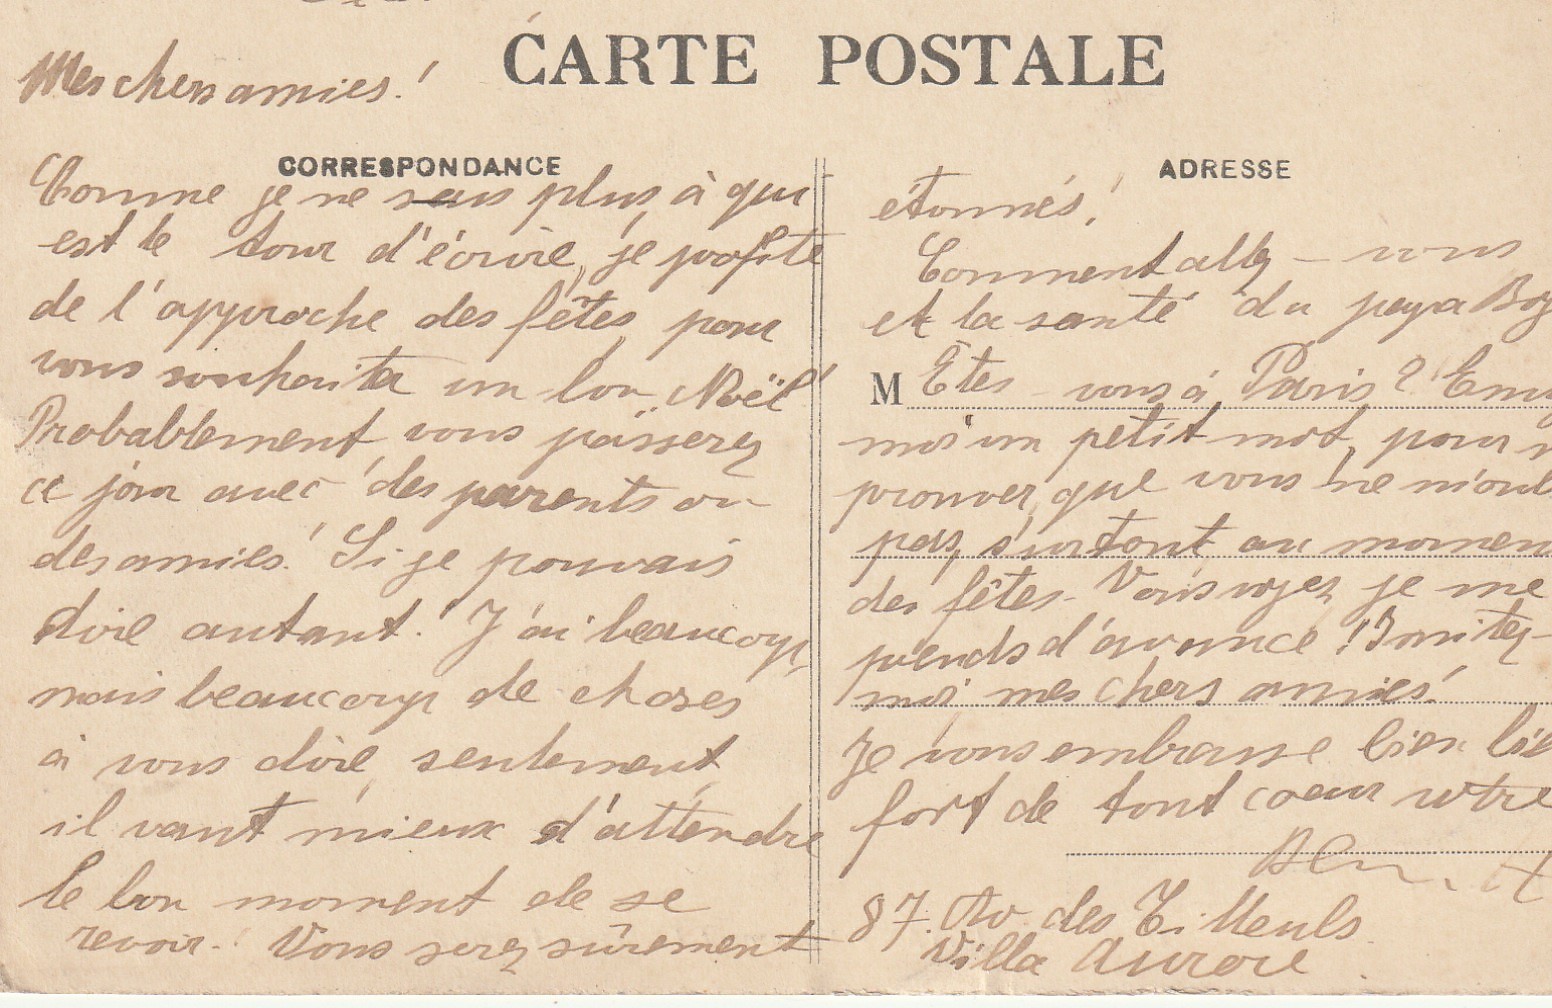 CARTE POSTALE
Mes chers amies!
CORRESPONDANCE
Comme je ne sais plus à qui
est le tour d'écrire, je profite
de l'approche des fêtes, pour
vous souhaiter un bon Noël!
Probablement, vous passerez
ce jour avec des parents ou
des amies! Si je pouvais
dire autant! J'ai beaucoup,
mais beaucoup de choses
à vous dire, seulement,
il vaut mieux d'attendre
le bon moment de se
revoir. Vous serez sûrement
ADRESSE
étonnés!
Comment allez-vous
et la santé du papa
M Etes-vous à Paris?
moi un petit mot, pour
prouver, que vous ne
pas, surtout au momen
des fêtes. Vous voyez, je me
prends d'avance! Imitez-
moi mes chers amies!
Je vous embrasse bien bie
fort de tout coeur votre
87. Av. des Tilleuls
Villa Aurore.